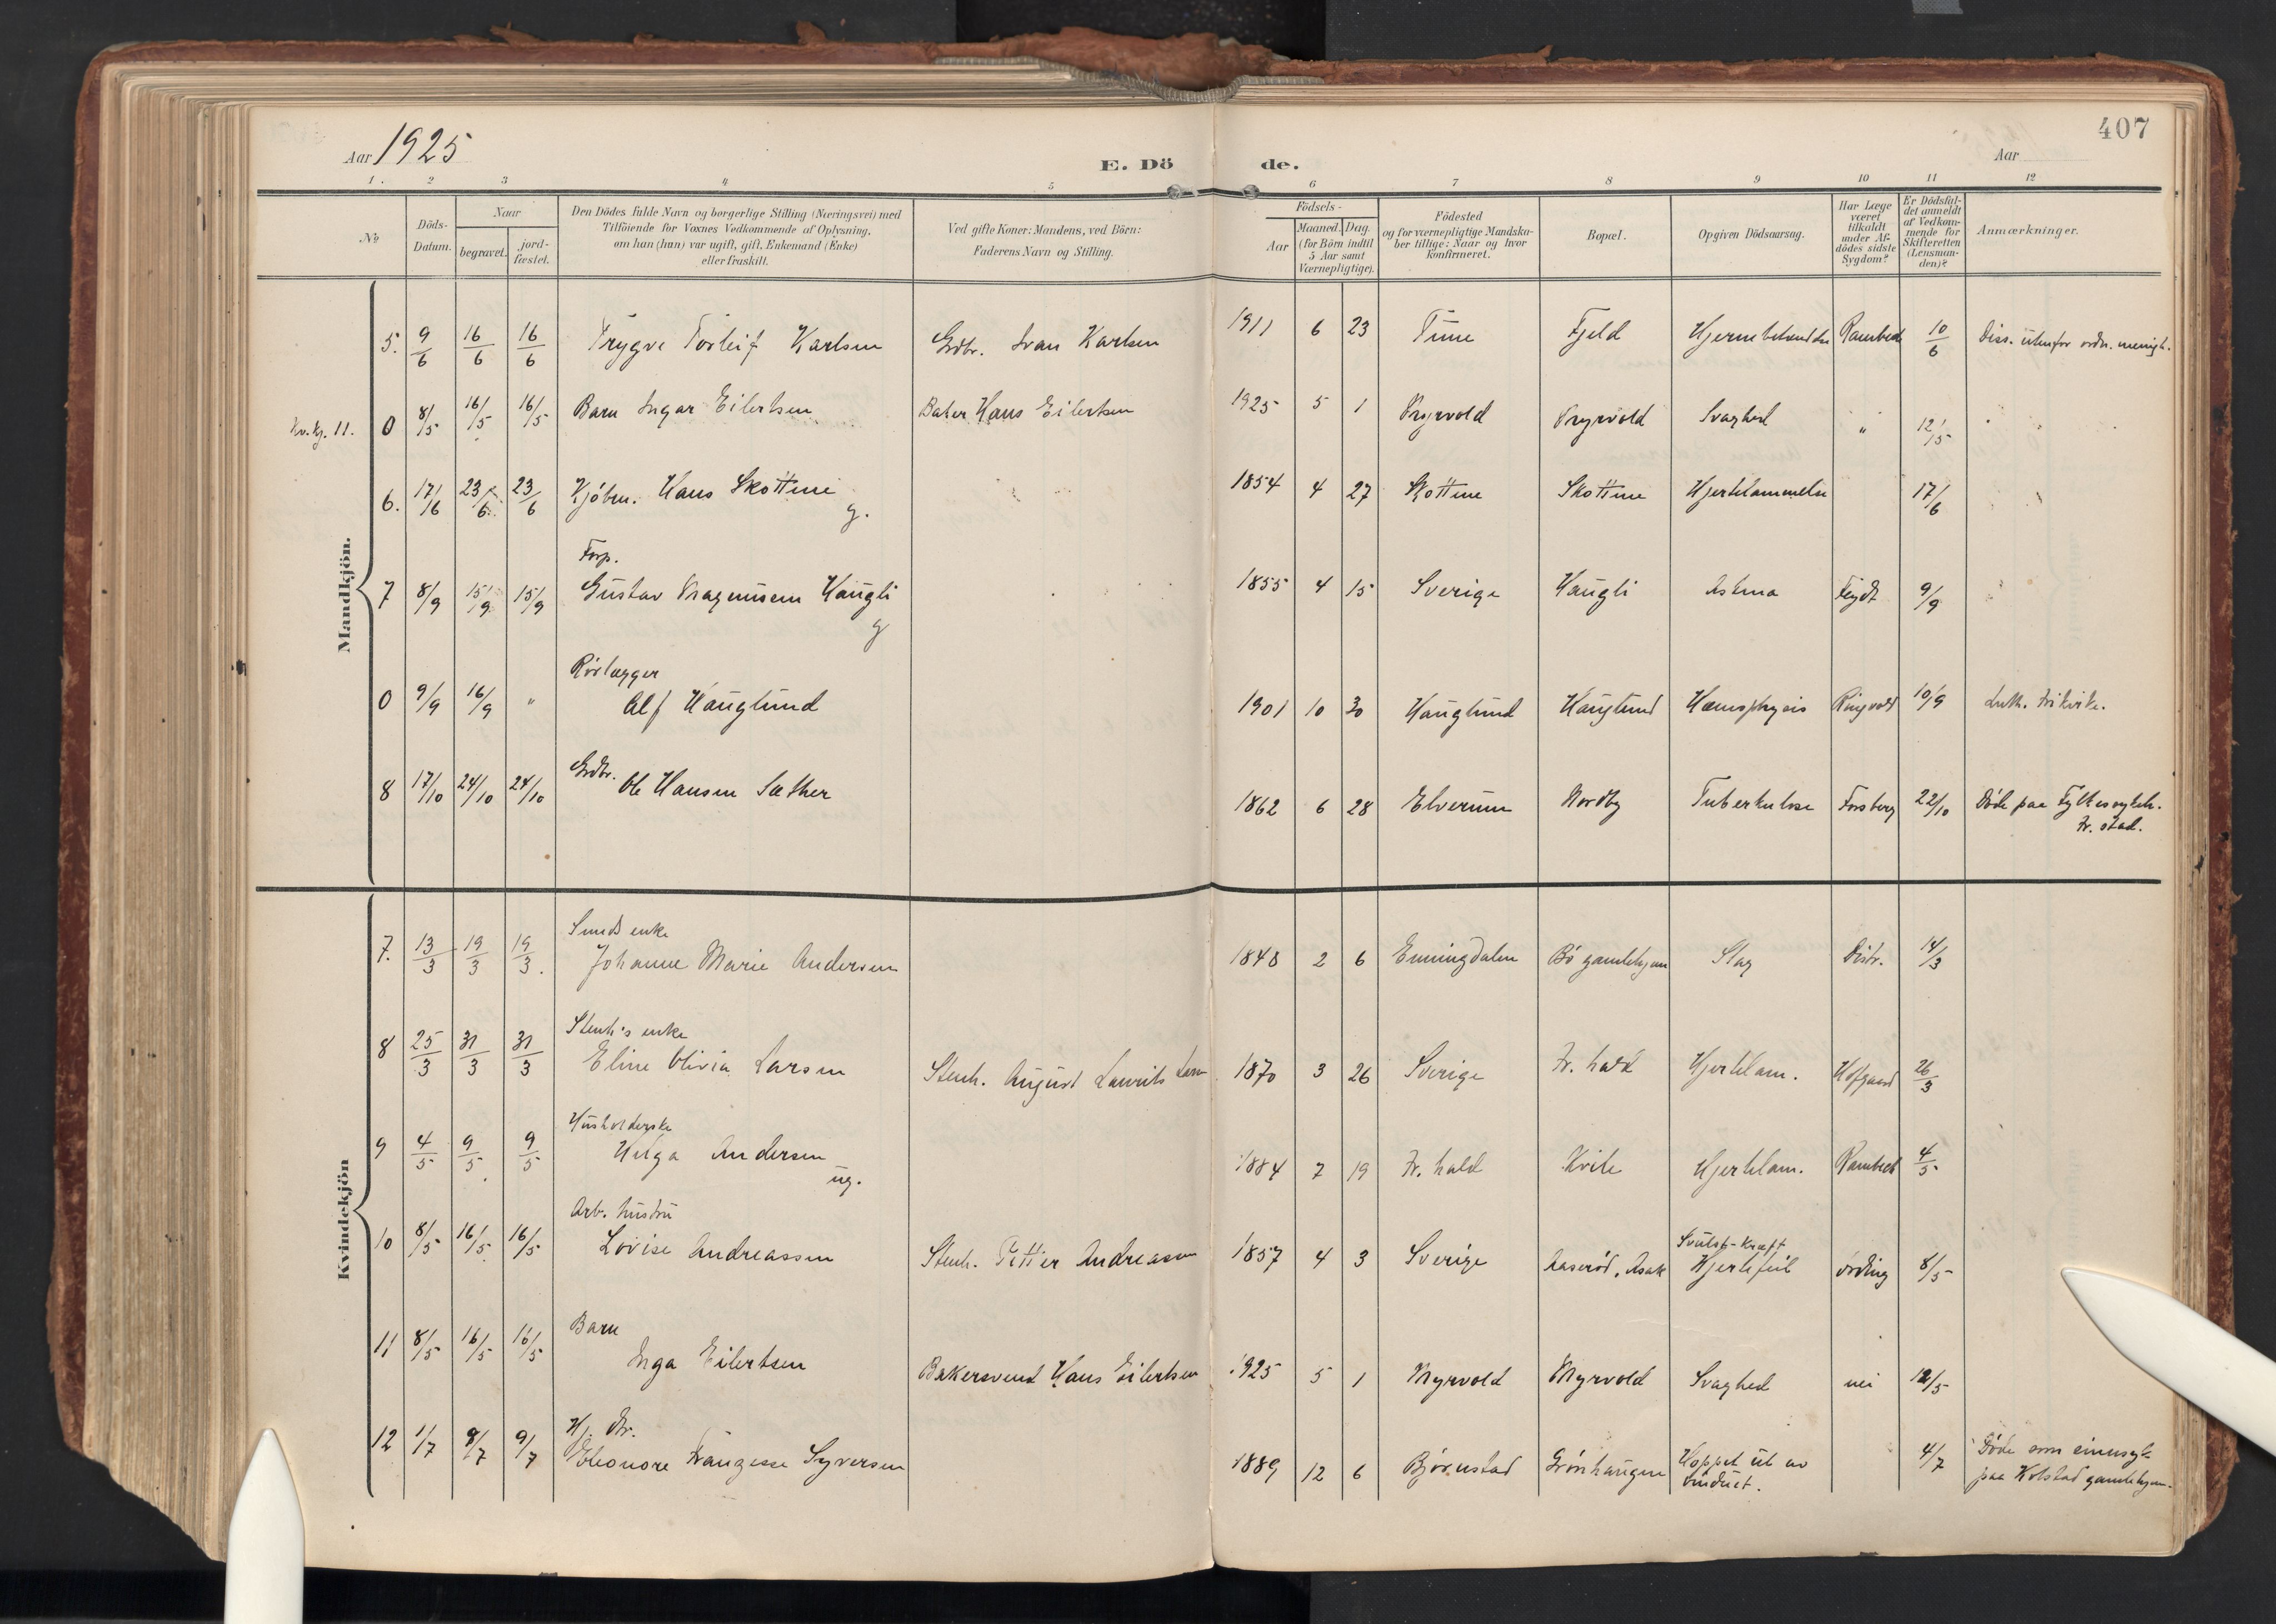 407
Aar 1925
E. Dö de.
Aar
1. 2 3 4 5 6 7 8 9 10 11 12
No
Döds-Datum.
Naar
begravet.
jord-fæstet.
Den Dödes fulde Navn og borgerlige Stilling (Næringsvei) med
Tilföiende for Voxnes Vedkommende af Oplysning,
om han (hun) var ugift, gift, Enkemand (Enke)
eller fraskilt.
Ved gifte Koner: Mandens, ved Börn:
Faderens Navn og Stilling.
Födsels-
Aar
Maaned. Dag.
(for Börn indtil
5 Aar samt
Værnepligtige).
Födested
og for værnepligtige Mandska-
ber tillige: Naar og hvor
konfirmeret.
Bopæl.
Opgiven Dödsaarsag.
Har Læge
været
tilkaldt
under Af-
dödes sidste
Sygdom?
Er Dödsfal-
det anmeldt
af Vedkom-
mende for
Skifteretten
(Lensman-
den)?
Anmærkninger.
Mandkjön.
5. 9/6 16/6 16/6 Trygve Torleif Karlsen Grdbr. Ivan Karlsen 1911 6 23 Tune Fjeld Rambech 10/6 Diss. utenfor ordn. menigh.
Kv.kj. 11. 0 8/5 16/5 16/5 Barn Ingar Eilertsen Baker Hans Eilertsen 1925 5 1 Myrvold Myrvold Svaghed " 12/5
6. 17/6 23/6 23/6 Kjöbm. Hans Skottene g. 1854 4 27 Skottene Skottene Hjertelammelse 17/6
Forp.
7 8/9 15/9 15/9 Gustav Magnusen Haugli g 1855 4 15 Sverige Haugli Astma Feydt 9/9
Rörlægger
0 9/9 16/9 " Alf Hauglund 1901 10 30 Hauglund Hauglund Ringvold 10/9 Luth. frikirke.
Grdbr.
8 17/10 24/10 24/10 Ole Hansen Sæther 1862 6 28 Elverum Nordby Tuberkulose Forsberg 22/10 Döde paa Fylkessykeh.
Fr. stad.
Kvindekjön
Smeds enke
7. 13/3 19/3 19/3. Johanne Marie Andersen 1848 2 6 Enningdalen Bö gamlehjem Slag Distr. 14/3
Stenh's enke
8 25/3 31/3 31/3 Eline Olivia Larsen Stenh. August Laurits Larsen 1870 3 26 Sverige Fr. hald Hjertelam. Hofgaard 26/3
Husholderske
9 4/5 9/5 9/5 Helga Andersen ug. 1884 7 19 Fr. hald Kvile Hjertelam. Rambech 4/5
Arb. hustru
10 8/5 16/5 16/5 Lovise Andreassen Stenh. Petter Andreassen 1857 4 3 Sverige Aaseröd, Asak Svulst-Kræft
Hjertefeil Örding 8/5
Barn
11 8/5 16/5 16/5 Inga Eilertsen Bakersvend Hans Eilertsen 1925 5 1 Myrvold Myrvold Svaghed nei 12/5
Hj. dtr.
12 1/7 9/7 9/7 Eleonore Syversen 1889 12 6 Björnstad Grönhaugen Hoppet ut av
vinduet. 4/7 Döde som sinnsyk
paa Kolstad gamlehjem.